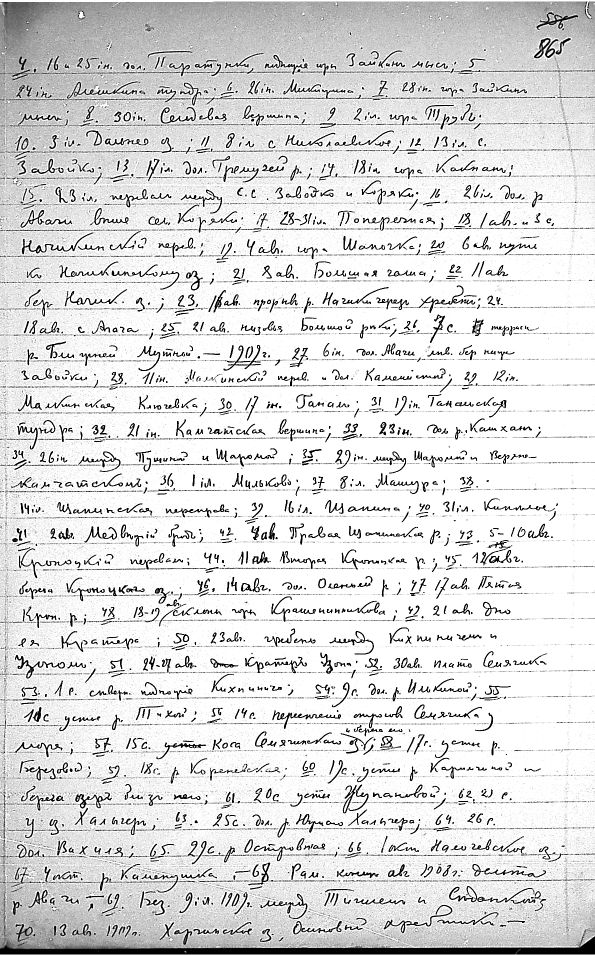 865
4. 16 и 25 iн. дол. Паратунки, подножie горы Зайкинъ мысъ; 5
24 iн. Алешкина тундра; 6. 26 iн. Микижина; 7. 28 iн. гора Зайкинъ
мысъ; 8. 30 iн. Селдевая вершина; 9 2 iл. гора Трубы;
10. 3 iл. Дальнее оз.; 11. 8 iл с Николаевское; 12. 13 iл. с.
Завойко; 13. 17 iл. дол. Гремучей р.; 14. 18 iл гора
15. 23 iл. перевалъ между с.с. Завойко и Коряки; 16. 26 iл. дол. р
Авачи выше сел. Коряки; 17 28-31 iл. Поперечная; 18. 1 ав. и 3 с.
Начикинскiй перев.; 19. 4 ав. гора Шапочка; 20 6 ав. пути
къ Начикинскому оз; 21. 8 ав. Большая чаша; 22 11 ав
бер Начик. оз.; 23. ав. прорывъ р. Начики черезъ хребетъ; 24.
18 ав. с Апача; 25. 21 ав. низовья Большой рѣки; 26. 7 с. террасы
р. Мутной. — 1909 г., 27. 6 iн. дол. Авачи, лив. бер ниже
Завойки; 28. 11 iн. Малкинскiй перев. и дол. 29. 12 iн.
Малкинская Ключевка; 30 17 iн. Ганалы; 31 19 iн. Ганальская
тундра; 32. 21 iн. Камчатская вершина; 33. 23 iн. дол р. Кашханъ;
34. 26 iн между Пущиной и Шаромой; 35. 29 iн. между Шаромой и Верхне-
камчатскомъ; 36 1 iл. Мильково; 37 8 iл. Машура; 38.
14 iл. Щапинская переправа; 39. 16 iл. Щапина; 40. 31 iл. Кипелые;
41. 2 ав. Медвѣжiй 42. 4 ав. Правая Щапинская р.; 43. 5-10 авг.
Кроноцкiй перевалъ; 44. 11 ав. Вторая Кроноцкая р.; 45. 12 авг.
берега Кроноцкого оз.; 46. 14 авг. дол. Оленьей р; 47 17 ав. Пятая
Крон. р; 48 18-19 ав. склоны горы Крашенинникова; 49. 21 ав. дно
ея Кратера; 50. 23 ав. гребень между Кихпинычем и
Узономъ; 51. 24-27 ав. Кратеръ Узона; 52. 30 ав. плато Семячика
53. 1 с. северн. подножie Кихпиныча; 54. 9 с. дол. р. Илькиной; 55.
10 с устье р. Тихой; 56 14 с. пересеченiе отроговъ Семячика у
моря; 57. 15 с. Коса Семячинского оз и берега его; 58 17 с. устье р.
Березовой; 59. 18 с. р Кореневская; 60 19 с. устье р. Карымчиной и
берега озеръ близъ него; 61. 20 с устье Жупановой; 62. 21 с.
у оз. Халыгеръ; 63. 25 с. дол. р Юшало Халыгера; 64. 26 с.
дол. Вахиля; 65 29 с. р Островная; 66. 1 окт. Налочевское оз.;
67 4 окт. р. Каменушка, — 68. Рам. конецъ авг 1908 г. дельта
р. Авачи —, 69. Без. 9 iл. 1909 г. между Тигилем и Седанкой,
70. 13 ав. 1909 г. Харчинское оз, Осиновый хребтикъ. —